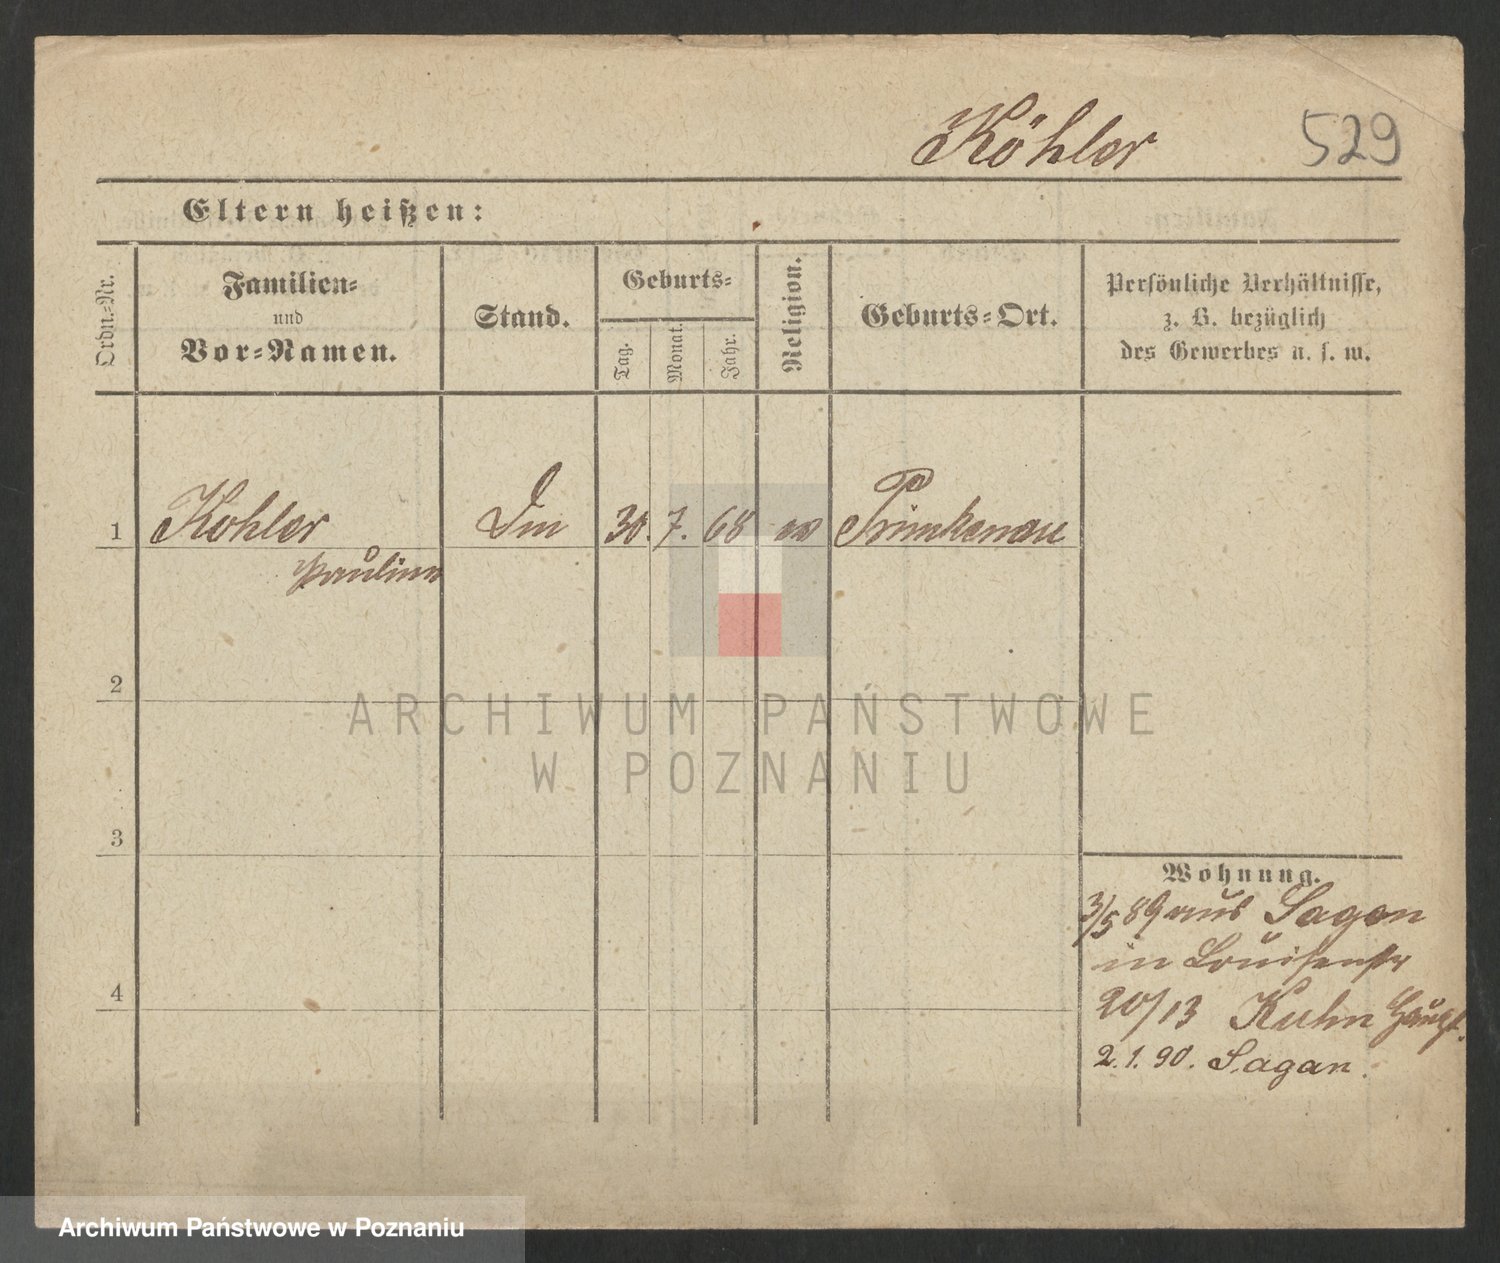 Köhler 529
Eltern heißen:
Ordn.-Nr.
Familien-
und
Vor-Namen.
Stand.
Geburts-
Tag.
Monat.
Jahr.
Religion.
Geburts-Ort.
Persönliche Verhältnisse,
z. B. bezüglich
des Gewerbes u. s. w.
1 Köhler 30. 7. 68 ev Primkenau
Pauline
2
3
4
Wohnung.
3/5 89 aus Sagan
in Louisenstr
20/13 Kuhn Haupt.
2.1.90. Sagan.
ARCHIWUM PAŃSTWOWE
W POZNANIU
Archiwum Państwowe w Poznaniu